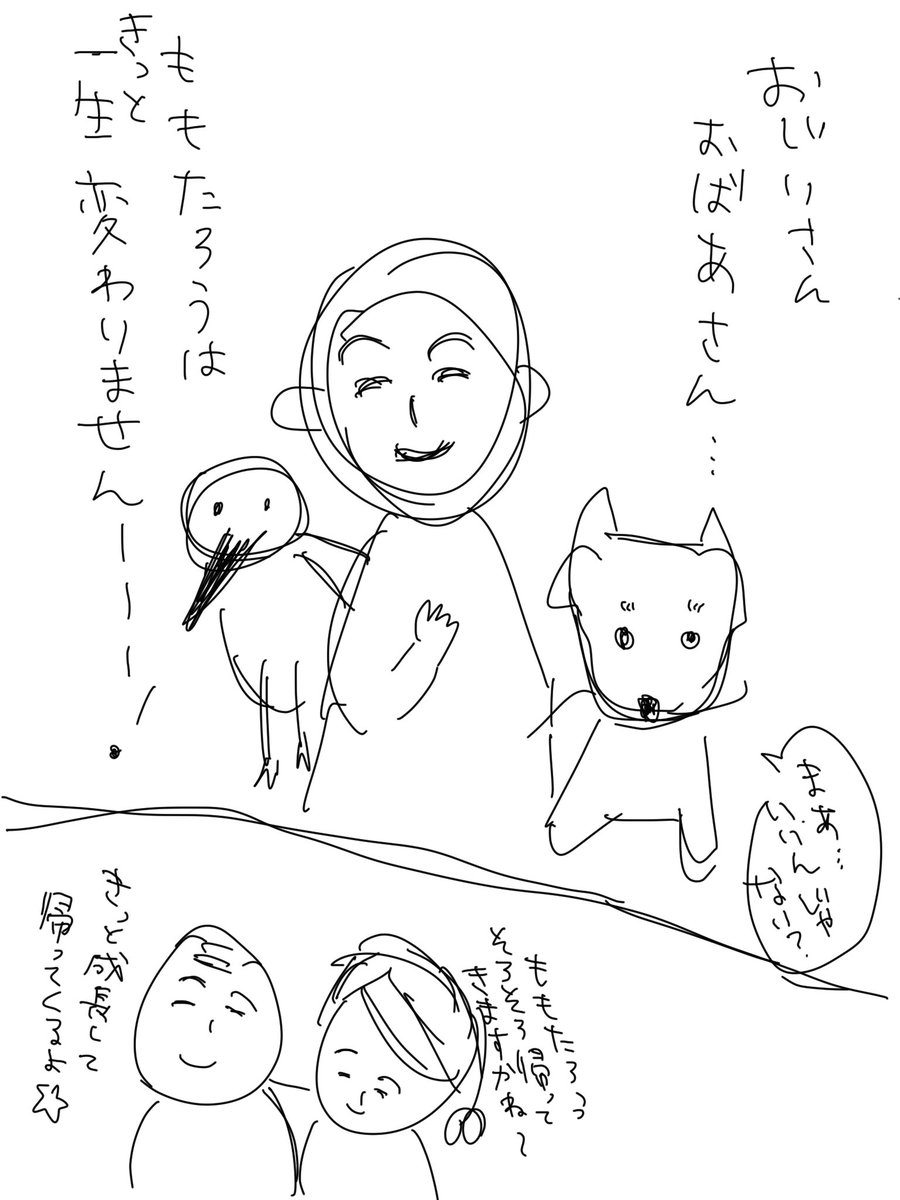 おじいさん
おばあさん…
ももたろうは
きっと
一生変わりませんーーーー！
まあ…
いいんじゃ
ない？
ももたろうっ
そろそろ帰って
きますかね〜
きっと成長して
帰ってくるよ☆